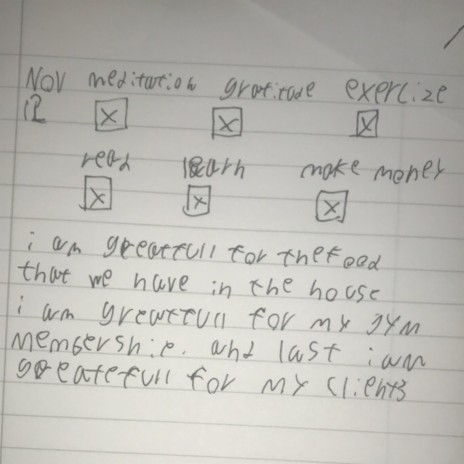 NOV meditation gratitude exercize
12 X X X
read learn make money
X X X
i am greatfull for the food
that we have in the house
i am greatfull for my gym
membershie. and last i am
greatefull for my clients